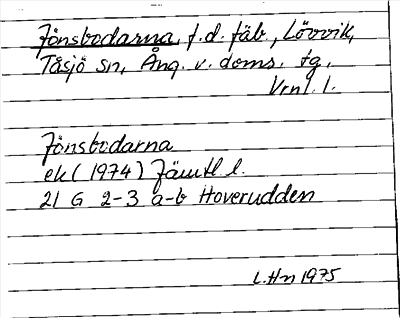 Jönsbodarna, f.d. fäb., Lövvik,
Tåsjö sn, Ång. v. doms. tg,
Vrnl. l.
Jönsbodarna
ek (1974) Jämtl l.
21 G 2-3 a-b Hoverudden
L.Hn 1975